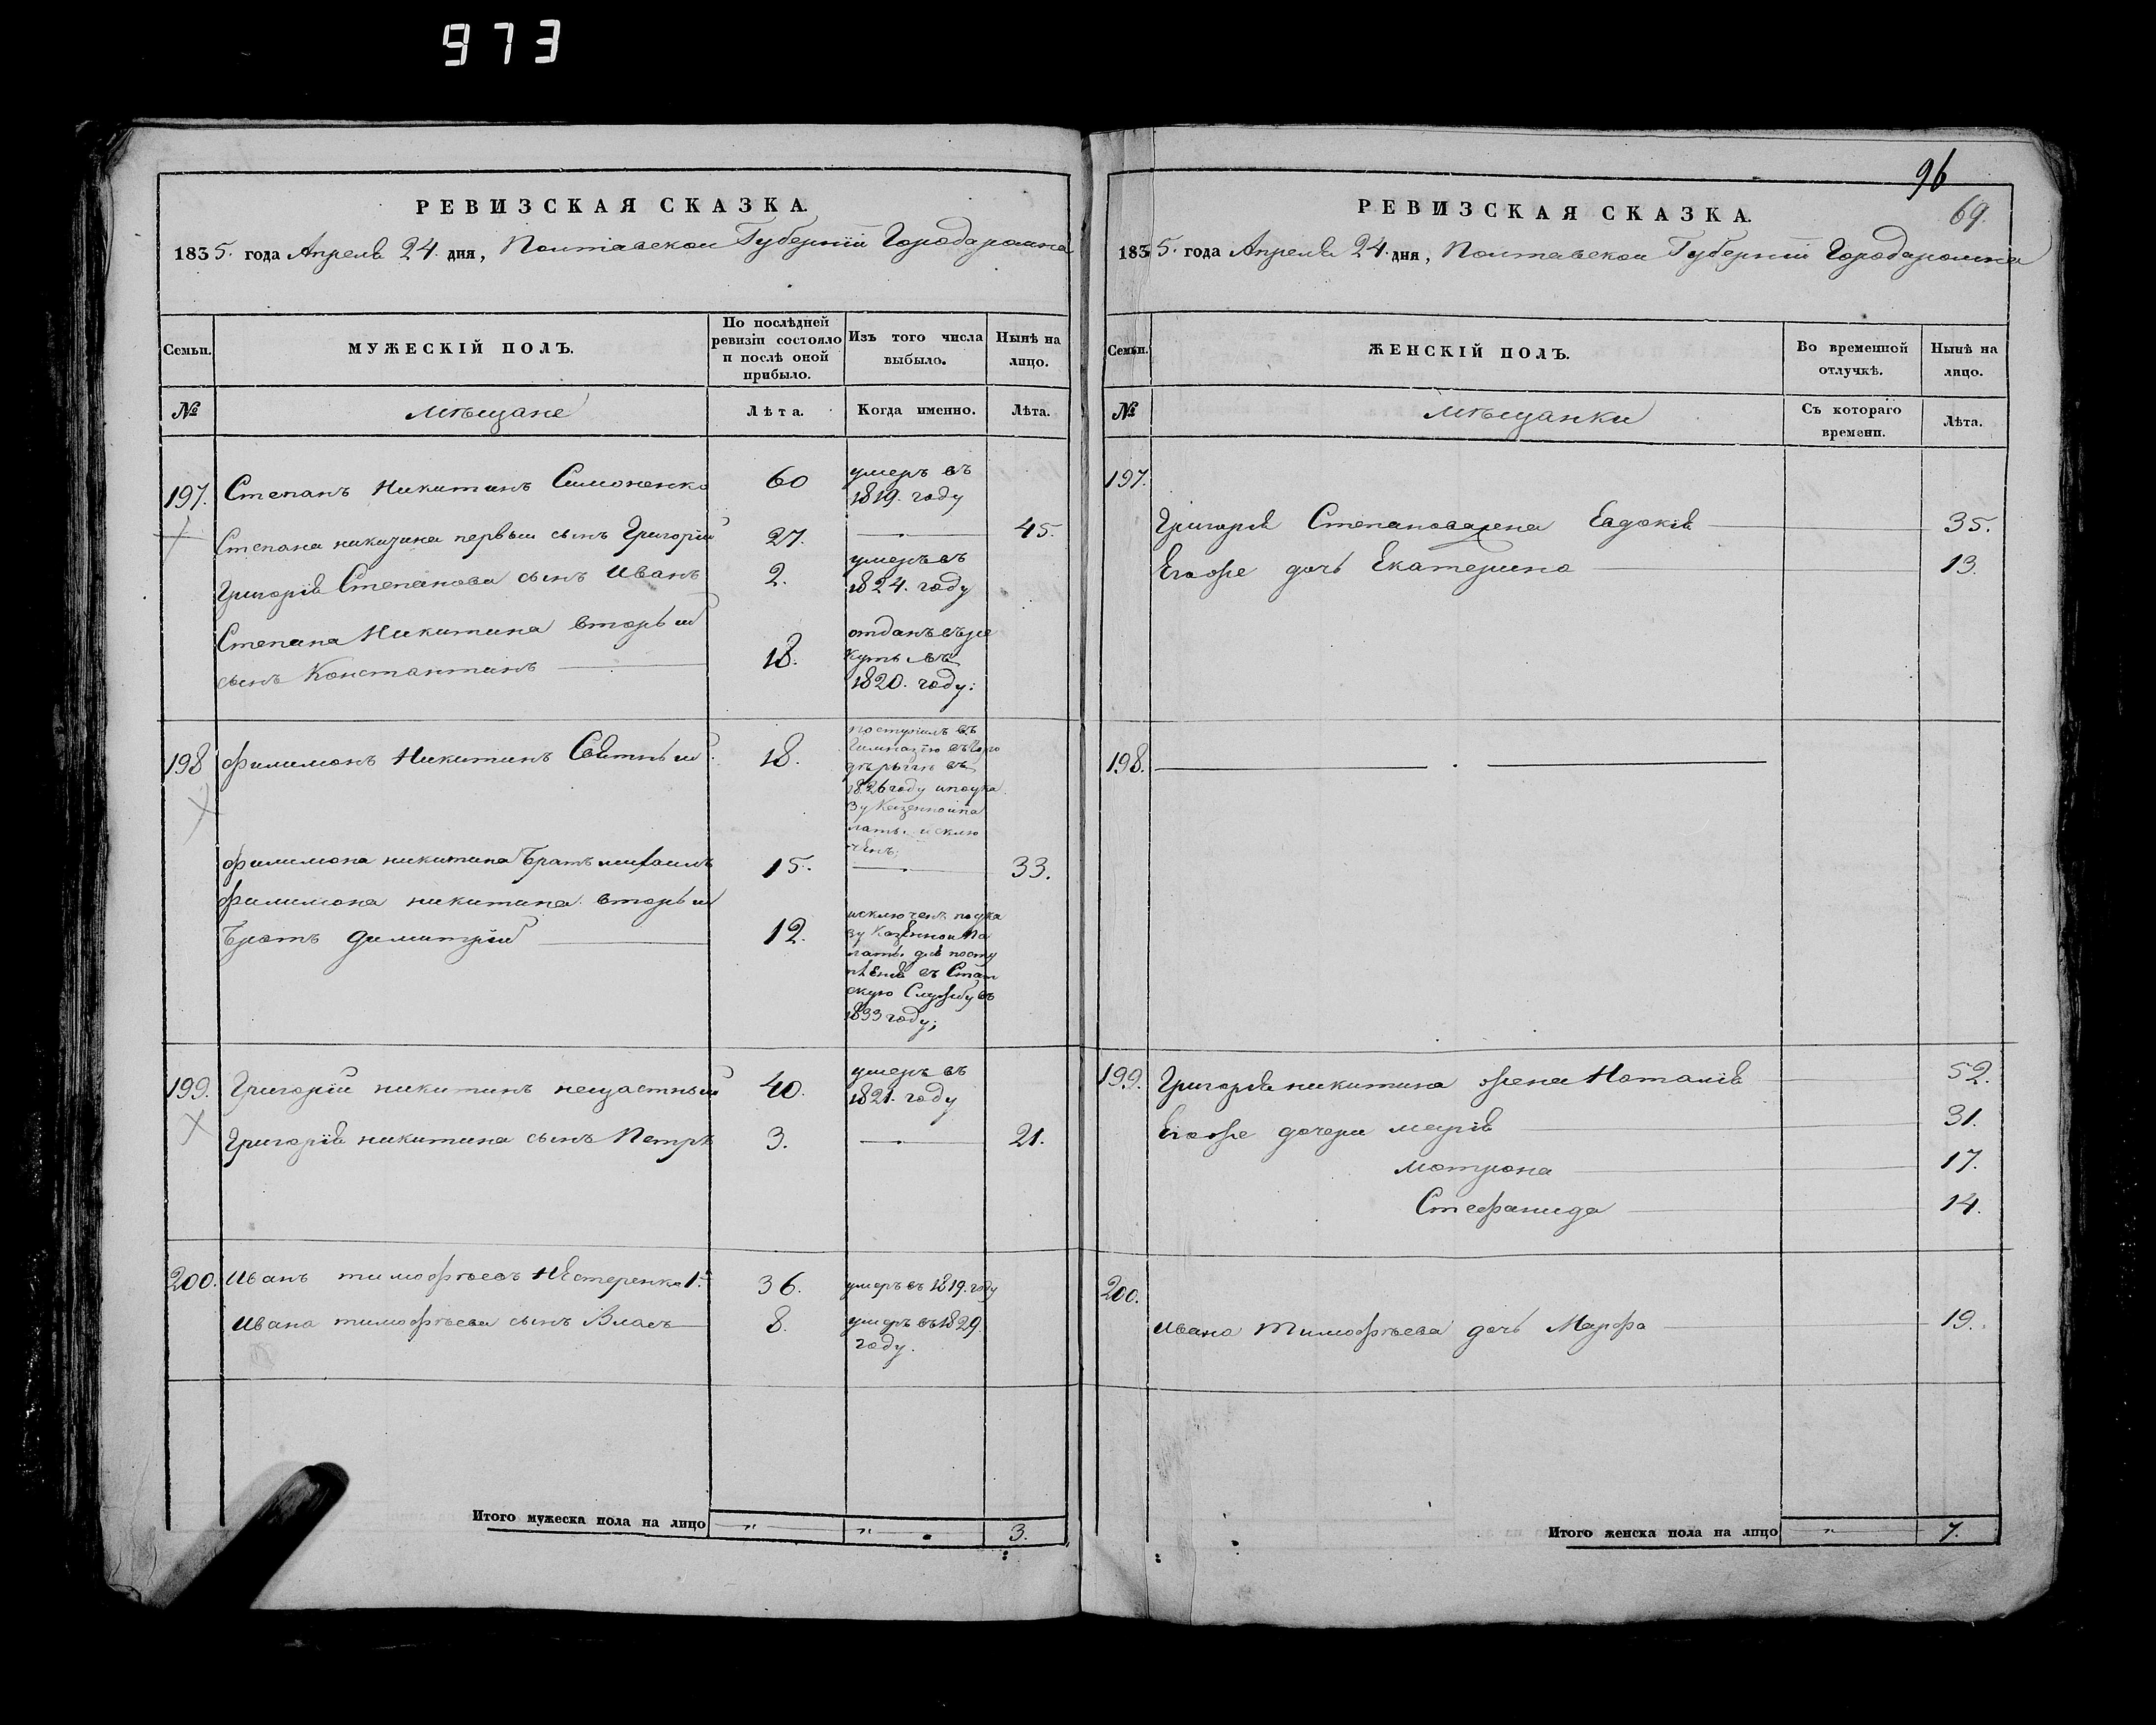 973
РЕВИЗСКАЯ СКАЗКА.
1835. года Апреля 24. дня, Полтавской Губерніи Города ромна
Семьи.
МУЖЕСКІЙ ПОЛЪ.
По послѣдней ревизіи состояло и послѣ оной прибыло.
Изъ того числа выбыло.
Нынѣ на лицо.
№
мѣщане
Лѣта.
Когда именно.
Лѣта.
197. Степанъ Никитинъ Симоненко 60 умеръ въ 1819. году
Степана никитина первый сынъ Григорій 27. 45.
Григорія Степанова сынъ Иванъ 2. умеръ въ 1824. году
Степана Никитина вторый
сынъ Константинъ 18. отданъ въ ре
куты въ
1820. году:
198 филимонъ Никитинъ 18. поступилъ въ
Гимназію въ Горо
дѣ въ
1826 году и по ука
зу Казенной па
латы исклю
ченъ;
филимона никитина братъ михаилъ 15. 33.
филимона никитина вторый
братъ димитрій 12. исключенъ по ука
зу Казенной Па
латы для посту
пленія въ Стат
скую Службу въ
1833 году;
199. Григорій никитинъ нещастный 40. умеръ въ 1821. году
Григорія никитина сынъ Петръ 3. 21.
200. Иванъ тимофѣевъ Нестеренко 1й 36. умеръ въ 1819. году
Ивана тимофѣева сынъ Власъ 8. умеръ въ 1829.
году.
Итого мужеска пола на лицо " " 3.
96
69.
РЕВИЗСКАЯ СКАЗКА.
1835. года Апреля 24. дня, Полтавской Губерніи Города ромна
Семьи.
ЖЕНСКІЙ ПОЛЪ.
Во временной отлучкѣ.
Нынѣ на лицо.
№
мѣщанки
Съ котораго времени.
Лѣта.
197.
Григорія Степанова жена Евдокія 35.
Егоже дочь Екатерина 13.
198.
199. Григорія никитина жена Наталія 52.
Егоже дочери марія 31.
мотрона 17.
Стефанида 14.
200.
Ивана Тимофѣева дочь Марфа 19.
Итого женска пола на лицо " 7.